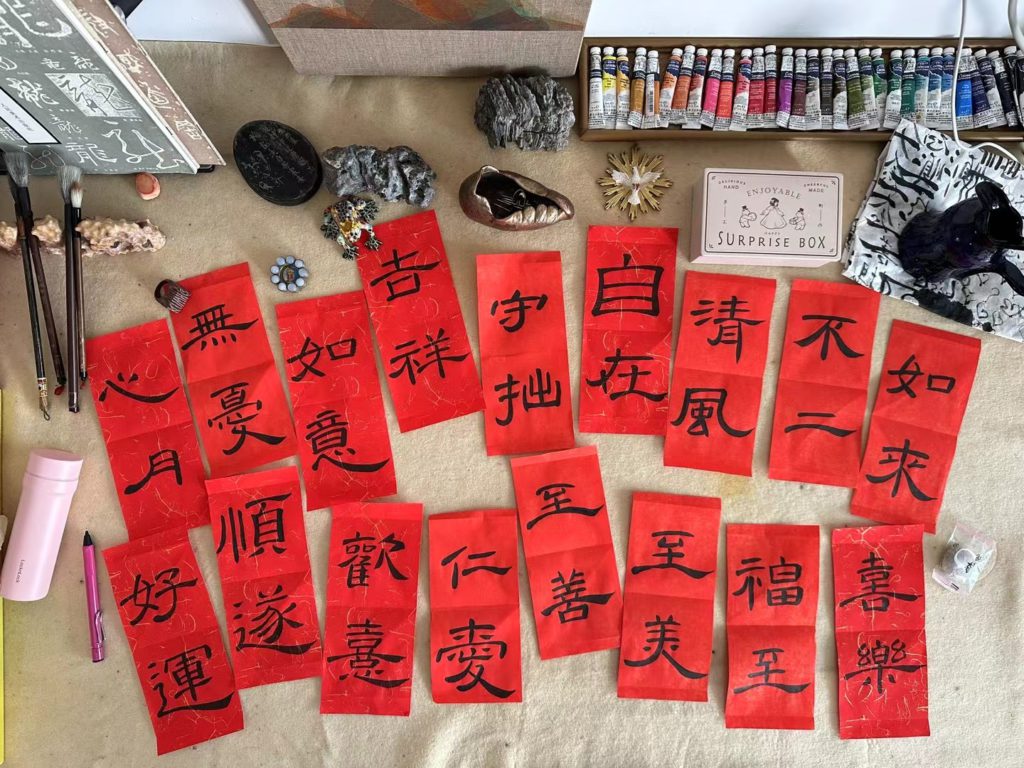 ENJOYABLE
DELICIOUS
HAND
CHEERFUL
MADE
手
工
制
作
HAPPY
SURPRISE BOX
心月
無憂
如意
吉祥
守拙
自在
清風
不二
如來
好運
順遂
歡憙
仁愛
至善
至美
福至
喜樂
LocknLock